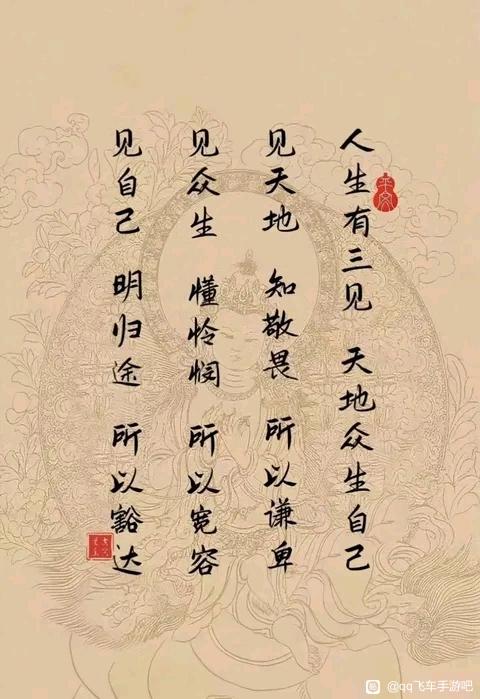 人生有三见 天地众生自己
见天地 知敬畏 所以谦卑
见众生 懂怜悯 所以宽容
见自己 明归途 所以豁达
@qq飞车手游吧